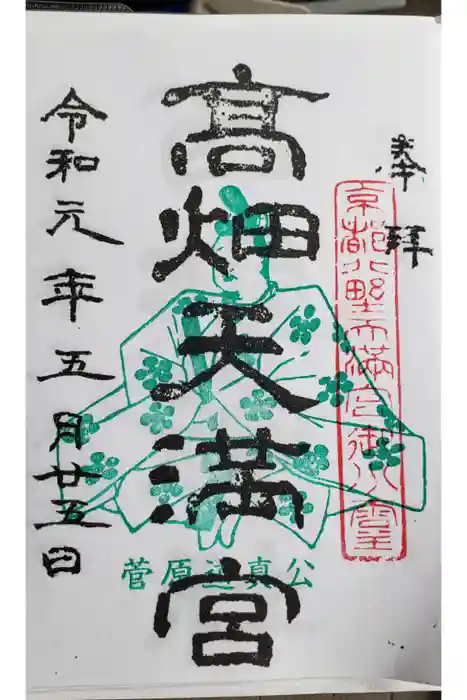 奉拝
京都北野天満宮御分霊
髙畑天満宮
菅原道真公
令和元年五月廿五日